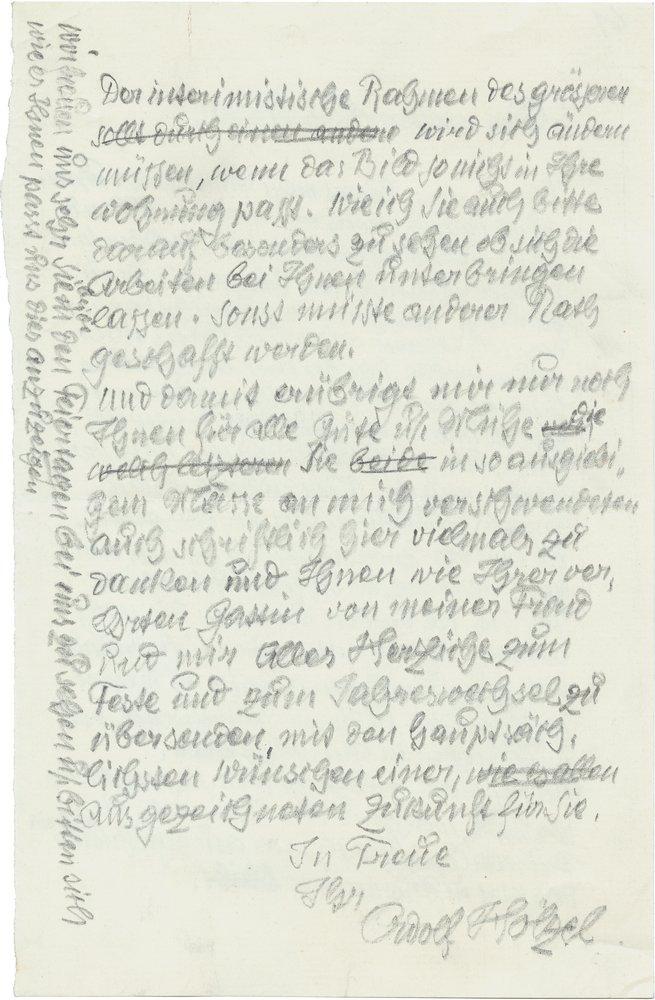 Der interimistische Rahmen des grösseren
sollte durch einen andern wird sich ändern
müssen, wenn das Bild so nicht in Ihre
Wohnung passt. Wie ich Sie auch bitte
darauf besonders zu sehen ob sich die
Arbeiten bei Ihnen unterbringen
lassen. Sonst müsste anderer Rath
geschafft werden.
Und damit erübrigt mir nur noch
Ihnen für alle Güte u. Mühe die
Sie beide in so ausgiebi„
gem Masse an mich verschwendeten
auch schriftlich hier vielmals zu
danken und Ihnen wie Ihrer ver„
ehrten Gattin von meiner Frau
und mir alles Herzliche zum
Feste und zum Jahreswechsel zu
übersenden, mit den hauptsäch„
lichsten Wünschen einer, wie es allen
ausgezeichneten Zukunft für Sie.
In Treue
Ihr
Adolf Hölzel
Wir freuen uns sehr Sie beide in den Feiertagen bei uns zu sehen u. bitten sich
wie es Ihnen passt uns dies anzuzeigen.